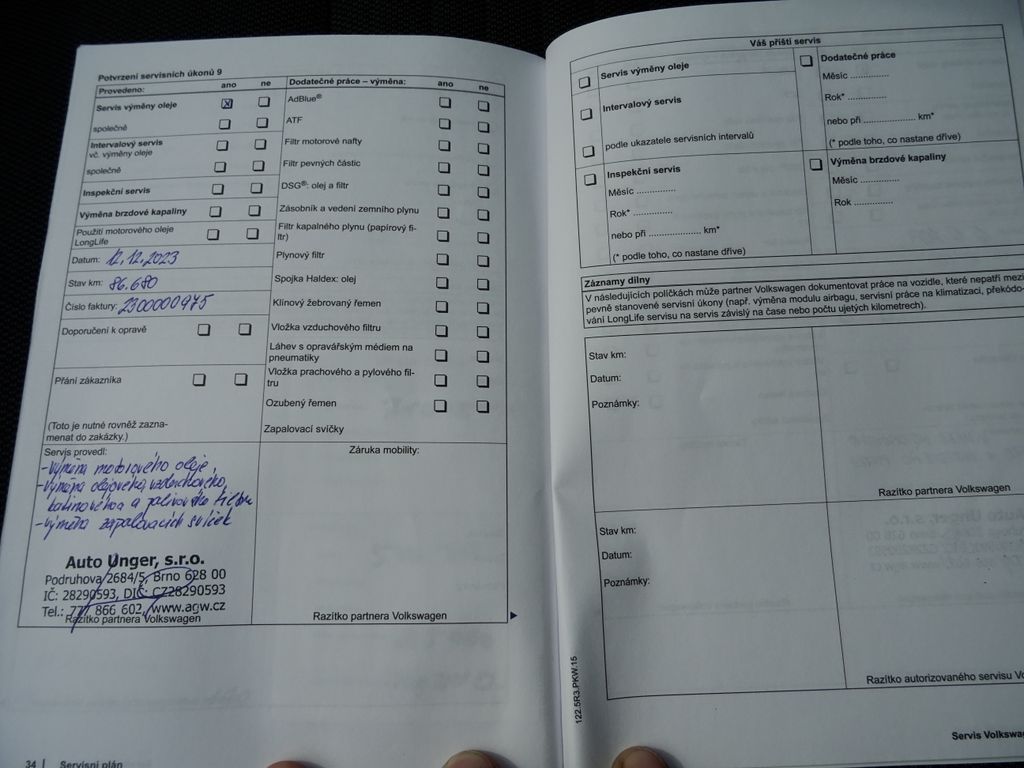 Potvrzení servisních úkonů 9
Provedeno: ano ne
Servis výměny oleje
společně
Intervalový servis
vč. výměny oleje
společně
Inspekční servis
Výměna brzdové kapaliny
Použití motorového oleje
LongLife
Datum: 12.12.2023
Stav km: 86.680
Číslo faktury: 2300000975
Doporučení k opravě
Přání zákazníka
(Toto je nutné rovněž zazna-
menat do zakázky.)
Dodatečné práce – výměna: ano ne
AdBlue®
ATF
Filtr motorové nafty
Filtr pevných částic
DSG®: olej a filtr
Zásobník a vedení zemního plynu
Filtr kapalného plynu (papírový fi-
ltr)
Plynový filtr
Spojka Haldex: olej
Klínový žebrovaný řemen
Vložka vzduchového filtru
Láhev s opravářským médiem na
pneumatiky
Vložka prachového a pylového fil-
tru
Ozubený řemen
Zapalovací svíčky
Servis provedl:
- Výměna motorového oleje,
- Výměna olejového, vzduchového,
kabinového a palivového filtru
- výměna zapalovacích svíček
Auto Unger, s.r.o.
Podruhova 2684/5, Brno 628 00
IČ: 28290593, DIČ: CZ28290593
Tel.: 777 866 602, www.agw.cz
Razítko partnera Volkswagen
Záruka mobility:
Razítko partnera Volkswagen
34 | Servisní plán
Váš příští servis
Servis výměny oleje
Intervalový servis
podle ukazatele servisních intervalů
Inspekční servis
Měsíc ..............
Rok* ..............
nebo při ................... km*
(* podle toho, co nastane dříve)
Dodatečné práce
Měsíc ..............
Rok* ..............
nebo při ................... km*
(* podle toho, co nastane dříve)
Výměna brzdové kapaliny
Měsíc ..............
Rok ..............
Záznamy dílny
V následujících políčkách může partner Volkswagen dokumentovat práce na vozidle, které nepatří mezi
pevně stanovené servisní úkony (např. výměna modulu airbagu, servisní práce na klimatizaci, překódo-
vání LongLife servisu na servis závislý na čase nebo počtu ujetých kilometrech).
Stav km:
Datum:
Poznámky:
Razítko partnera Volkswagen
Stav km:
Datum:
Poznámky:
Razítko autorizovaného servisu
122.5R3.PKW.15
Servis Volkswagen